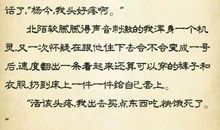 话了，“杨今，我头好疼啊。”
北陌软腻腻得声音刺激的我浑身一个机
灵，又一次怀疑在跟他住下去会不会变成一号
后，速度翻出一条看起来还算可以穿的裤子和
衣服，扔到床上一件一件给自己套上。
“活该头疼，我出去买点东西吃，快饿死了。